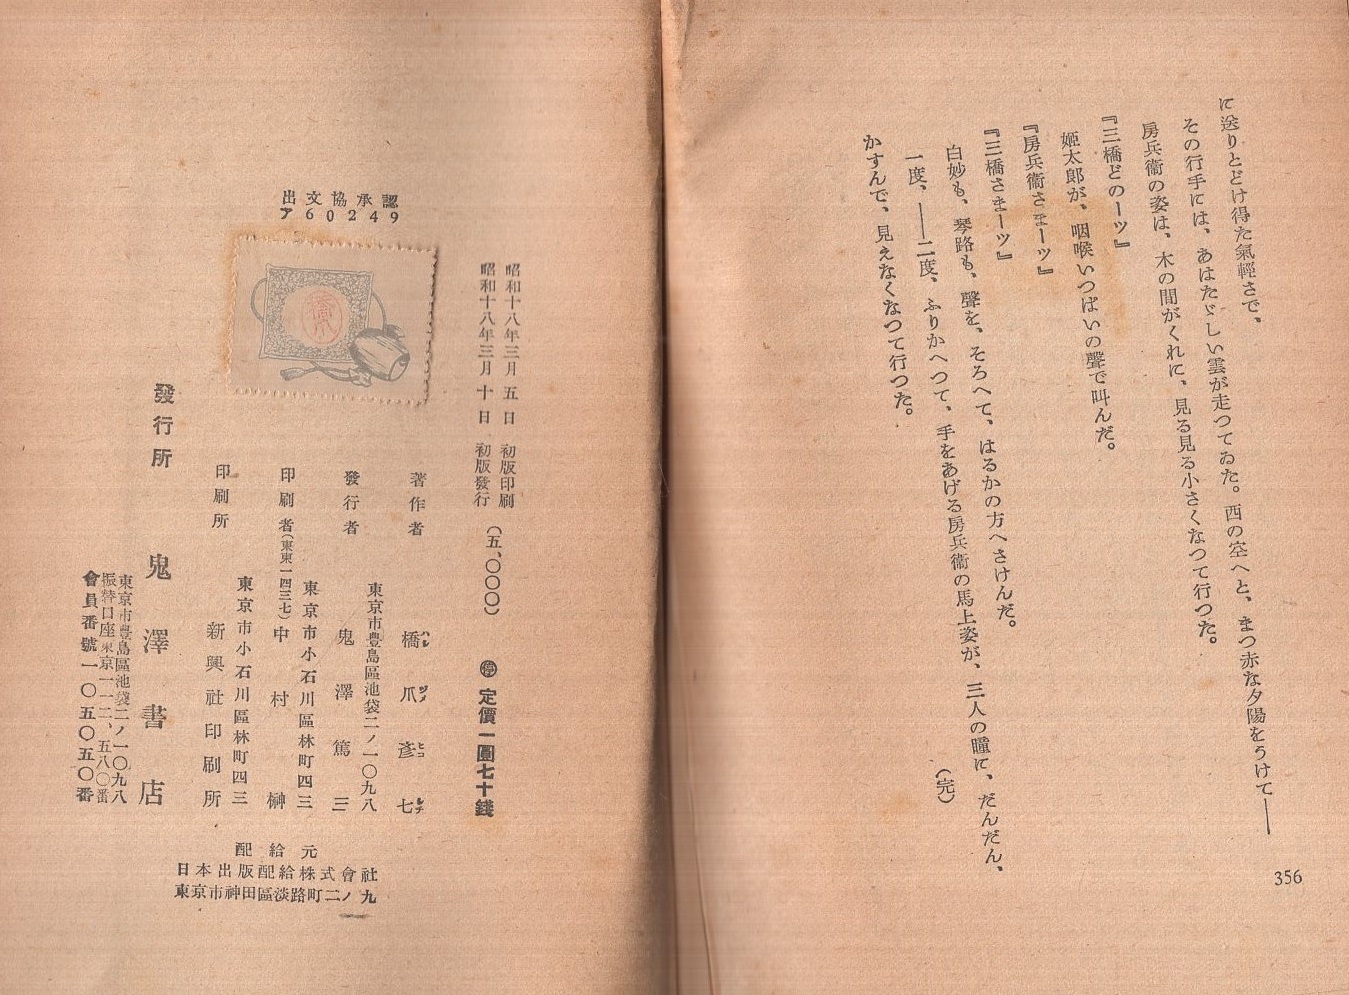 に送りとどけ得た氣輕さで、
その行手には、あはたゞしい雲が走つてゐた。西の空へと、まつ赤な夕陽をうけて――
房兵衞の姿は、木の間がくれに、見る見る小さくなつて行つた。
『三橋どのーツ』
姫太郎が、咽喉いつぱいの聲で叫んだ。
『房兵衞さまーツ』
『三橋さまーツ』
白妙も、琴路も、聲を、そろへて、はるかの方へさけんだ。
一度、――二度、ふりかへつて、手をあげる房兵衞の馬上姿が、三人の瞳に、だんだん、
かすんで、見えなくなつて行つた。
(完)
356
出文協承認
ア60249
昭和十八年三月五日 初版印刷
昭和十八年三月十日 初版發行
(五、〇〇〇)
停 定價一圓七十錢
著作者 橋爪彥七
ハシ ヅメ ヒコ シチ
東京市豊島區池袋二ノ一〇九八
發行者 鬼澤篤三
東京市小石川區林町四三
印刷者(東東一四三七) 中村榊
東京市小石川區林町四三
印刷所 新興社印刷所
發行所 鬼澤書店
東京市豊島區池袋二ノ一〇九八
振替口座東京一一二、五八〇番
會員番號一〇五〇五〇番
配給元
日本出版配給株式會社
東京市神田區淡路町二ノ九